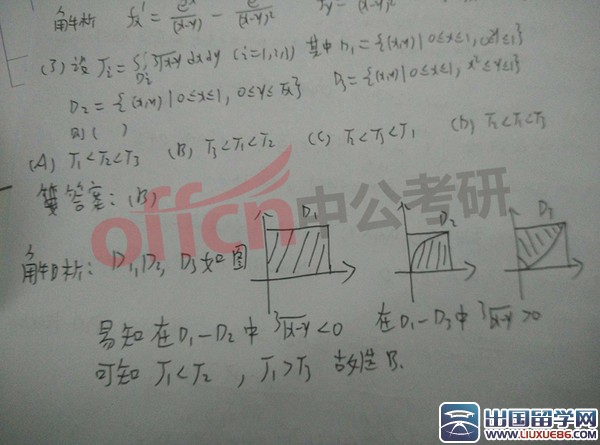 解析 fx' = e^x/(x-y) - e^x/(x-y)^2 fy' = /(x-y)^2
(3) 设 Ti = ∫∫Di ³√x-y dxdy (i=1,2,3) 其中 D1 = {(x,y) | 0≤x≤1, 0≤y≤1}
D2 = {(x,y) | 0≤x≤1, 0≤y≤√x} D3 = {(x,y) | 0≤x≤1, x²≤y≤1}
则 ( )
(A) T1<T2<T3 (B) T3<T1<T2 (C) T2<T3<T1 (D) T2<T1<T3
答案: (B)
offcn 中公考研
解析: D1, D2, D3 如图 D1 D2 D3
易知 在 D1-D2 中 ³√x-y <0 在 D1-D3 中 ³√x-y >0
可知 T1<T2 , T1>T3 故选 B.
出国留学网
www.liuxue86.com